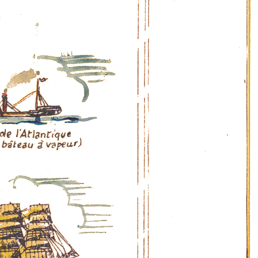 de l'Atlantique
bâteau à vapeur)